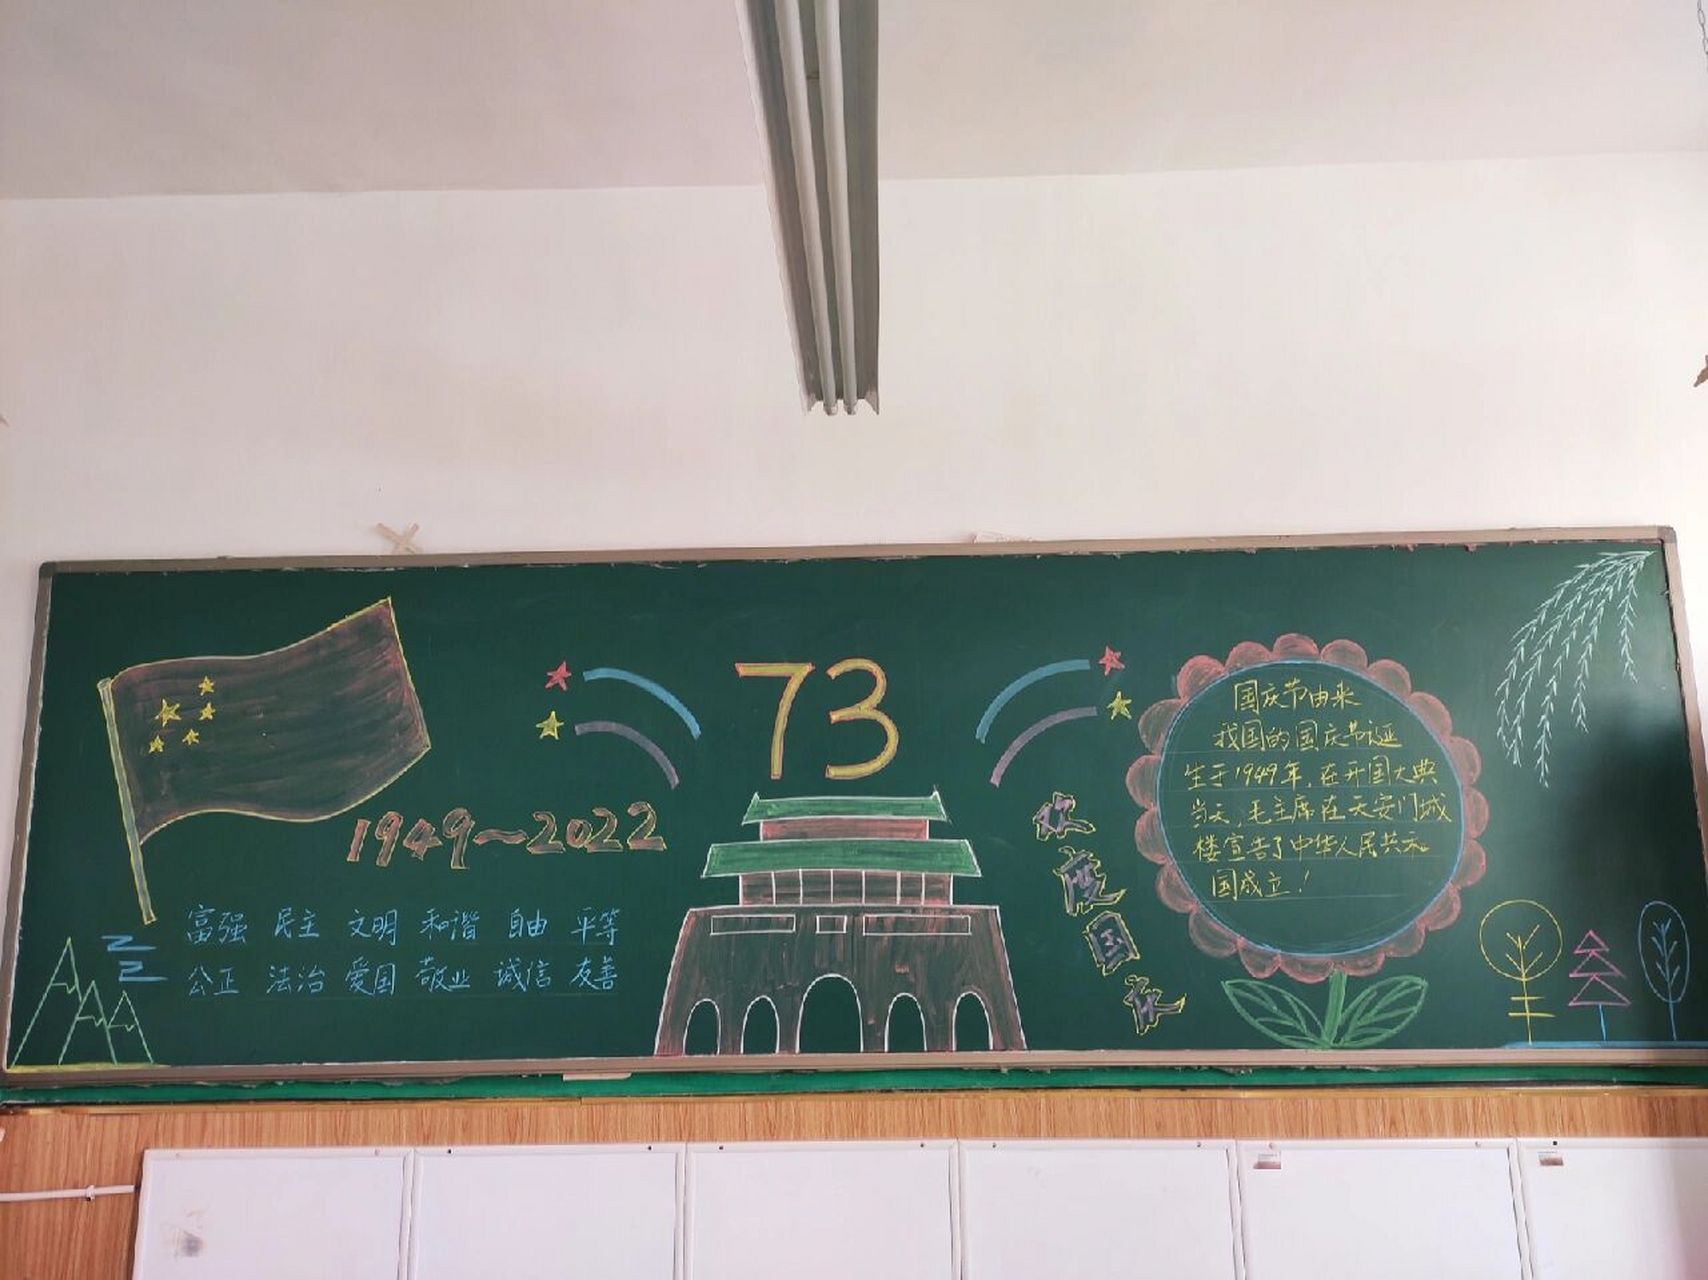 73
1949~2022
富强 民主 文明 和谐 自由 平等
公正 法治 爱国 敬业 诚信 友善
欢度国庆
国庆节由来
我国的国庆节诞
生于1949年,在开国大典
当天,毛主席在天安门城
楼宣告了中华人民共和
国成立!